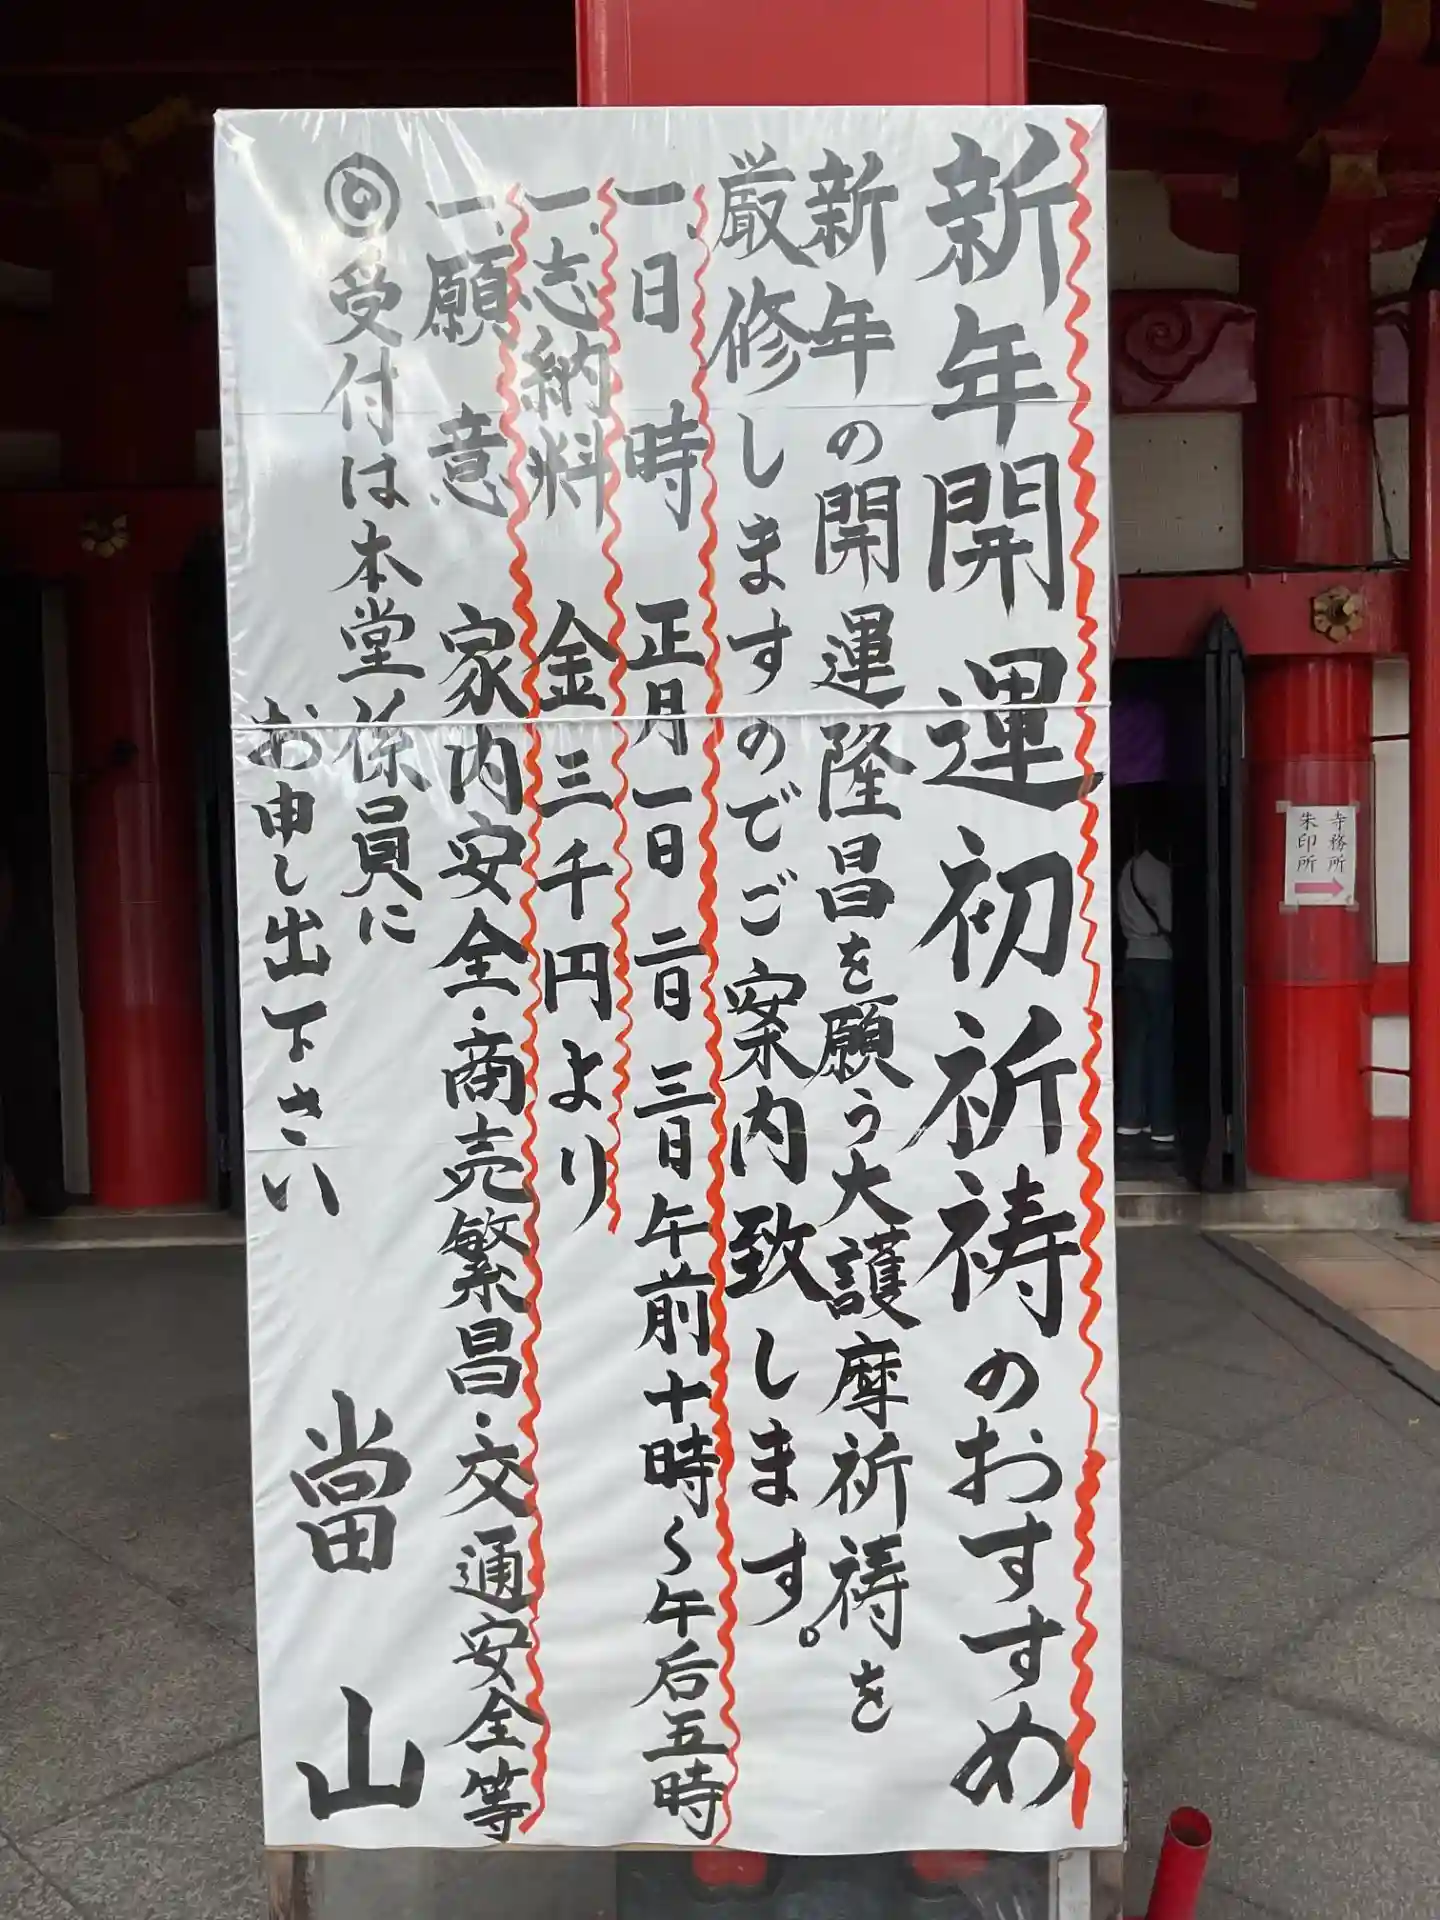 新年開運初祈祷のおすすめ
新年の開運隆昌を願う大護摩祈祷を
厳修しますのでご案内致します。
一、日時 正月一日 二日 三日 午前十時〜午后五時
一、志納料 金三千円より
一、願意 家内安全・商売繁昌・交通安全等
受付は本堂係員に
お申し出下さい
當山
寺務所
朱印所